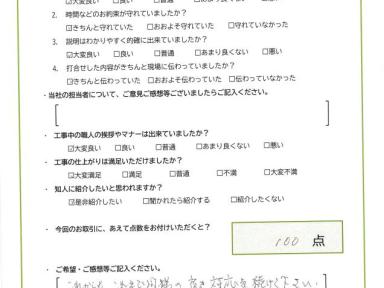 ☑大変良い □良い □普通 □あまり良くない □悪い
2. 時間などのお約束が守れていましたか？
☑きちんと守れていた □おおよそ守れていた □守れていなかった
3. 説明はわかりやすく的確に出来ていましたか？
☑大変良い □良い □普通 □あまり良くない □悪い
4. 打合せした内容がきちんと現場に伝わっていましたか？
☑きちんと伝わっていた □おおよそ伝わっていた □伝わっていなかった
・当社の担当者について、ご意見ご感想等ございましたらご記入ください。
・ 工事中の職人の挨拶やマナーは出来ていましたか？
☑大変良い □良い □普通 □あまり良くない □悪い
・ 工事の仕上がりは満足いただけましたか？
☑大変満足 □満足 □普通 □不満 □大変不満
・ 知人に紹介したいと思われますか？
☑是非紹介したい □聞かれたら紹介する □紹介したくない
・ 今回のお取引に、あえて点数をお付けいただくと？
100 点
・ ご希望・ご感想等ご記入ください。
これからも これまで同様の 良き 対応を 続けて下さい.